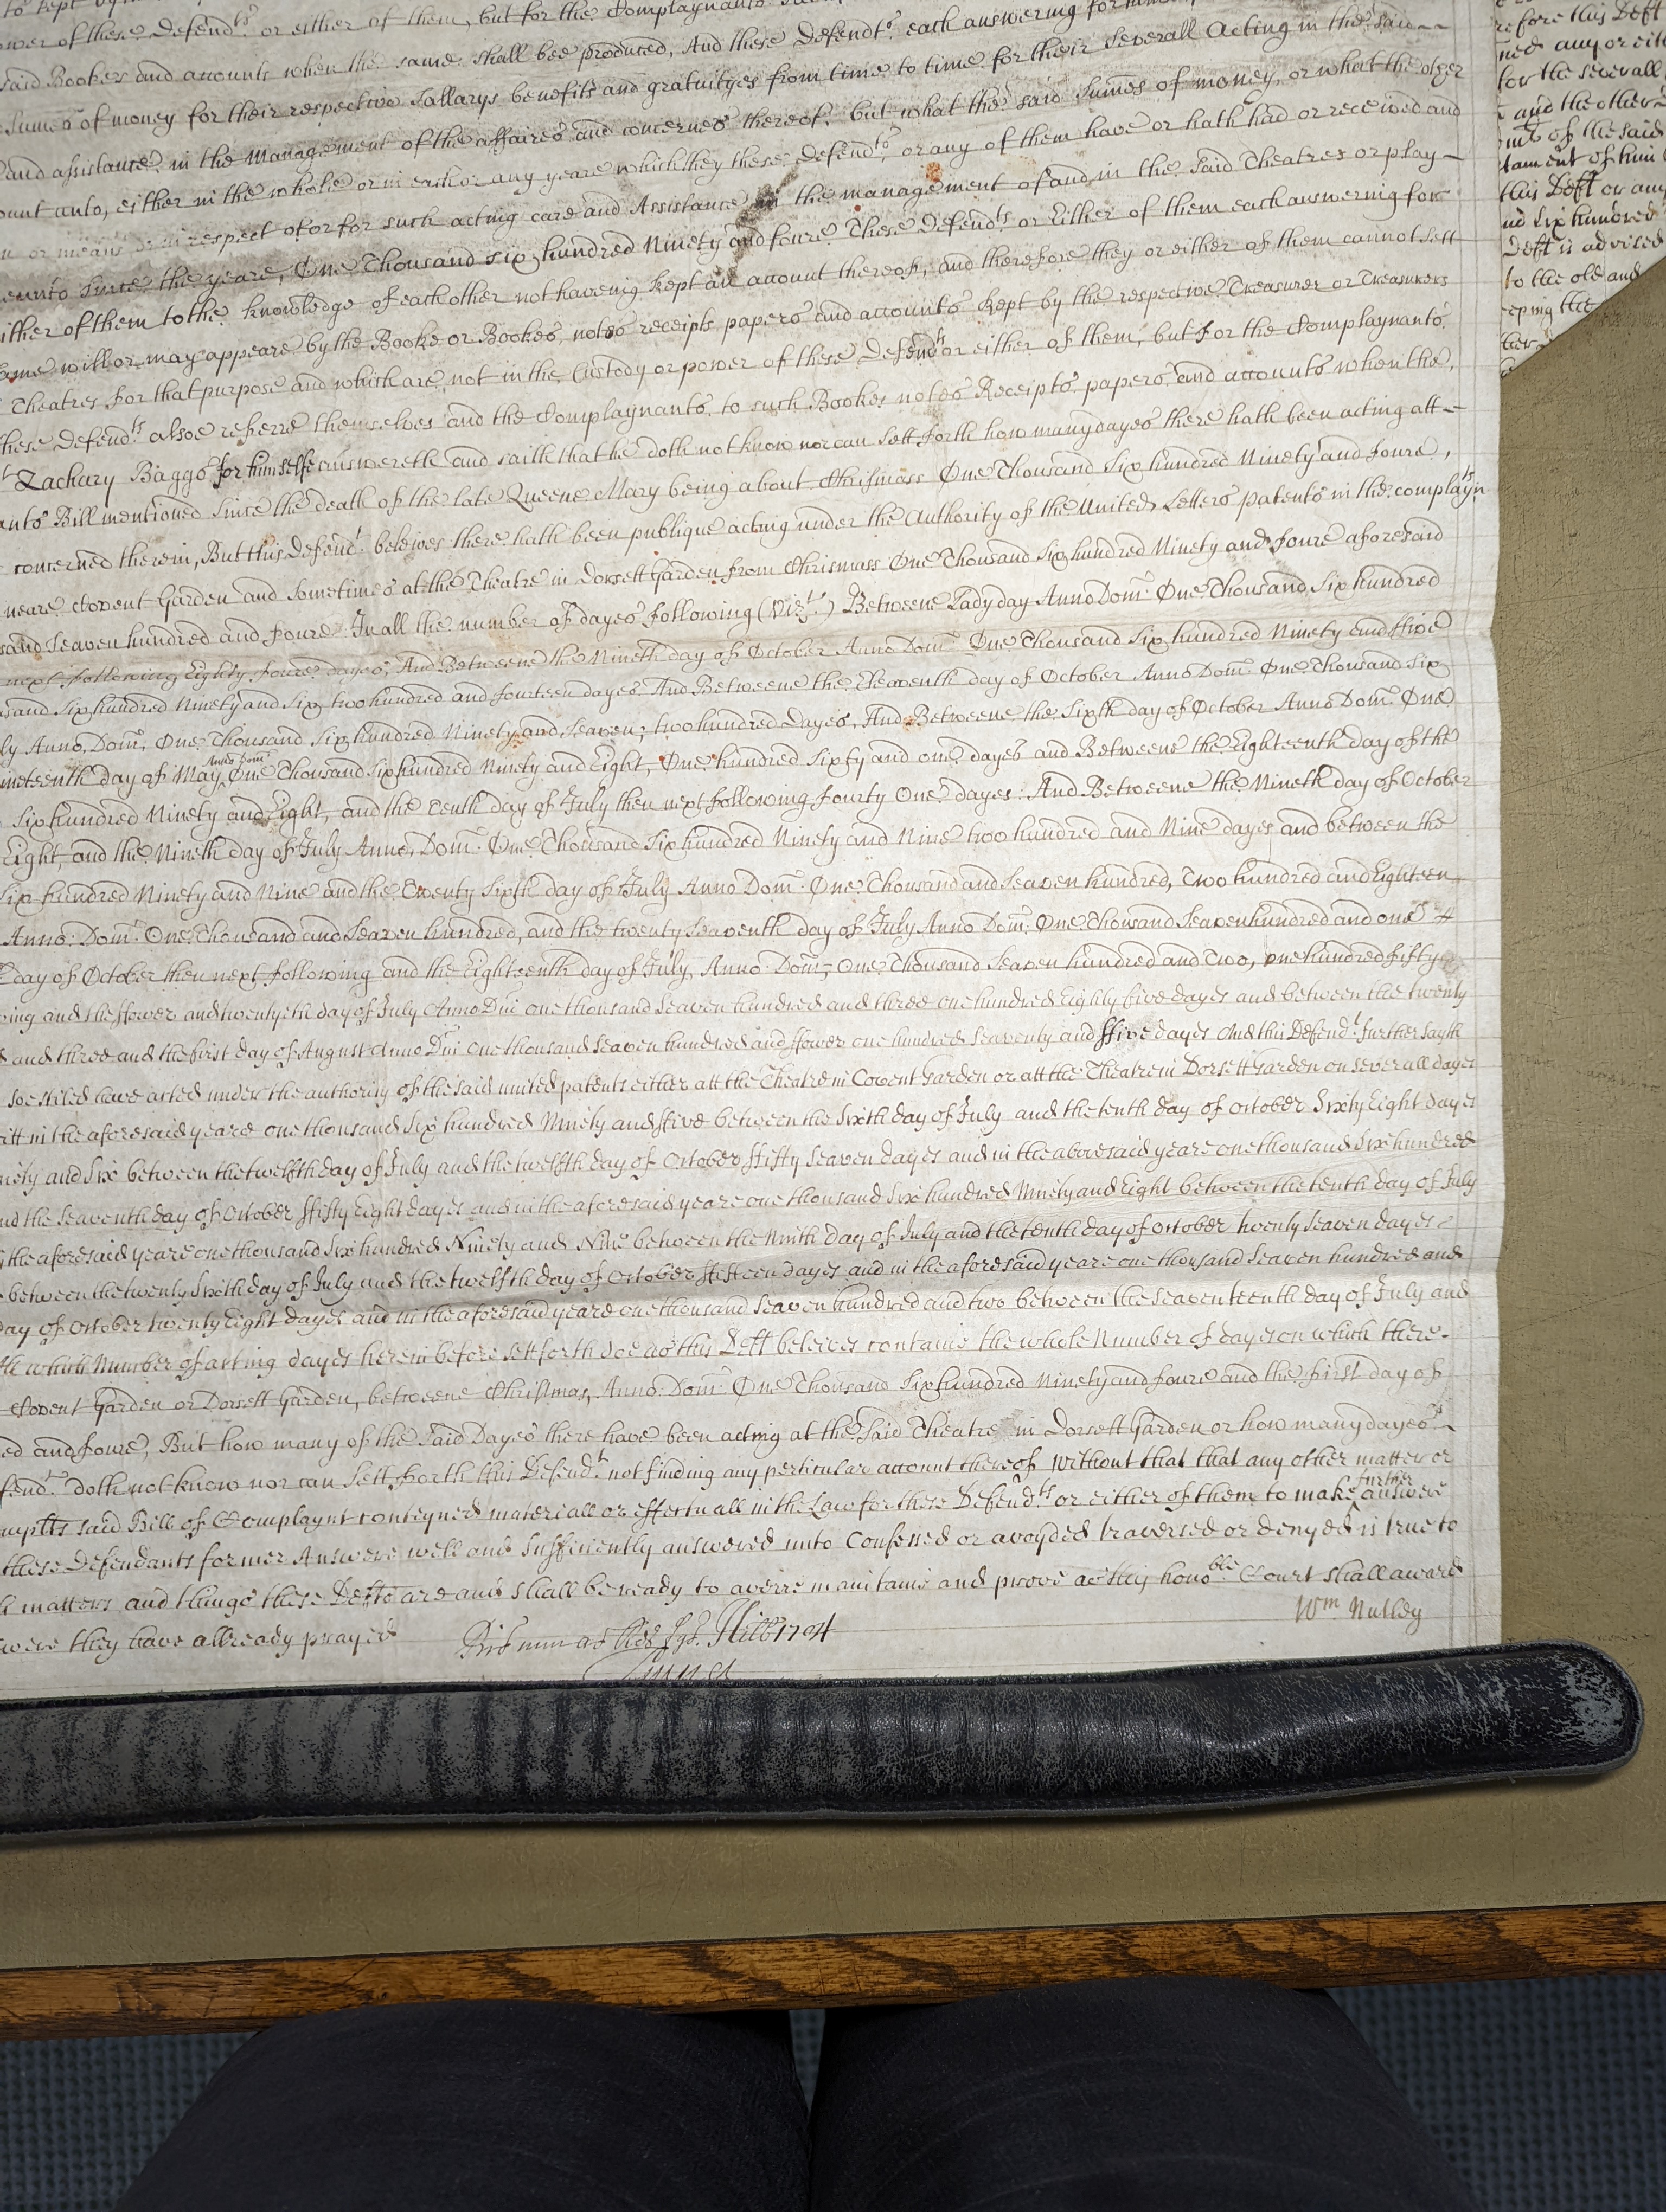 to kept by
ower of these Defend:ts or either of them, but for the Complaynants
said Bookes and accounts when the same shall bee produced, And these Defendts. each answering for
Sumes of money for their respective Sallarys benefitts and gratuityes from time to time for their Severall Acting in the said
and assistance in the Management of the affaires and concernes thereof, but what the said Sumes of money, or what the other
ount unto, either in the whole or in each or any yeare which they these Defend:ts or any of them have or hath had or received and
n or means in respect of or for such acting care and Assistance in the management of and in the Said Theatres or play
eunto since the yeare, One Thousand six hundred Ninety and foure These Defend:ts or Either of them each answering for
ither of them to the knowledge of each other not haveing kept an account thereof, and therefore they or either of them cannot sett
ame will or may appeare by the Booke or Bookes, notes receipts papers and accounts kept by the respective Treasurer or Treasurers
Theatres for that purpose and which are not in the Custody or power of these Defend:ts or either of them, but for the Complaynants
these Defend:ts alsoe referre themselves and the Complaynants to such Bookes notes Receipts papers and accounts when the
t Zachary Baggs for himselfe answereth and saith that he doth not know nor can sett forth how many dayes there hath been acting att
ants Bill mentioned since the death of the late Queene Mary being about Chrismass One Thousand Six hundred Ninety and foure,
concerned therein, But this Defend:t beleives there hath been publique acting under the Authority of the United Letters patents in the complayn:ts
neare Covent Garden and sometimes at the Theatre in Dorsett Garden from Chrismass One Thousand Six hundred Ninety and foure aforesaid
sand Seaven hundred and foure In all the number of dayes following (Vizt.) Betweene Lady day Anno Dom: One Thousand Six hundred
next following Eighty foure dayes, And Betweene the Nineth day of October Anno Dom: One Thousand Six hundred Ninety and ffive
usand Six hundred Ninety and Six two hundred and fourteen dayes And Betweene the Eleaventh day of October Anno Dom: One Thousand Six
ly Anno, Dom: One Thousand Six hundred Ninety and Seaven, two hundred Dayes, And Betweene the Sixth day of October Anno Dom: One
Nineteenth day of May Anno Dom: One Thousand Six hundred Ninety and Eight, One hundred Sixty and one dayes and Betweene the Eighteenth day of the
Six hundred Ninety and Eight, and the Tenth day of July then next following fourty One dayes: And Betweene the Nineth day of October
Eight, and the Nineth day of July Anno, Dom: One Thousand Six hundred Ninety and Nine two hundred and Nine dayes and between the
Six hundred Ninety and Nine and the Twenty Sixth day of July Anno Dom: One Thousand and Seaven hundred, Two hundred and Eighteen
Anno: Dom: One Thousand and Seaven hundred, and the twenty Seaventh day of July Anno Dom: One Thousand Seaven hundred and one
day of October then next following and the Eighteenth day of July, Anno Dom: One Thousand Seaven hundred and Two, one hundred fifty
wing and the ffower and twentyeth day of July Anno Dni one thousand Seaven hundred and three one hundred Eighty five dayes and between the twenty
d and three and the first day of August Anno Dni one thousand Seaven hundred and ffower one hundred Seaventy and ffive dayes And this Defend:t further sayth
soe stiled have acted under the authority of the said united patents either att the Theatre in Covent Garden or att the Theatre in Dorsett Garden on severall dayes
itt in the aforesaid yeare one thousand Six hundred Ninety and ffive between the Sixth day of July and the tenth day of October Sixty Eight dayes
inety and Six between the twelfth day of July and the twelfth day of October ffifty Seaven dayes and in the abovesaid yeare one thousand Six hundred
nd the Seaventh day of October ffifty Eight dayes and in the aforesaid yeare one thousand Six hundred Ninety and Eight between the tenth day of July
the aforesaid yeare one thousand Six hundred Ninety and Nine between the Ninth day of July and the tenth day of October twenty Seaven dayes
between the twenty Sixth day of July and the twelfth day of October ffifteen dayes and in the aforesaid yeare one thousand Seaven hundred and
day of October twenty Eight dayes and in the aforesaid yeare one thousand Seaven hundred and two between the Seaventeenth day of July and
which Number of acting dayes herein before sett forth doe as this Deft beleives containe the whole Number of dayes on which there
Covent Garden or Dorsett Garden, betweene Christmas, Anno: Dom: One Thousand Six hundred Ninety and foure and the first day of
ed and foure, But how many of the Said Dayes there have been acting at the Said Theatre in Dorsett Garden or how many dayes
fend:t doth not know nor can Sett forth this Defend:t not finding any perticular account thereof Without that that any other matter or
mplts said Bill of Complaynt conteyned materiall or effectuall in the Law for these Defend:ts or either of them to make further answere
these Defendants former Answere well and Sufficiently answered unto Confessed or avoyded traversed or denyed is true to
matters and things these Defts are and shall be ready to averre maintaine and prove as this hono:ble Court shall award
were they have allready prayed
Wm Nutley
1704
refore this Deft
ned any or eith
for the severall
and the other
of the said
tament of him
this Deft or any
nd Six hundred
Deft is advised
to the old and
eping the